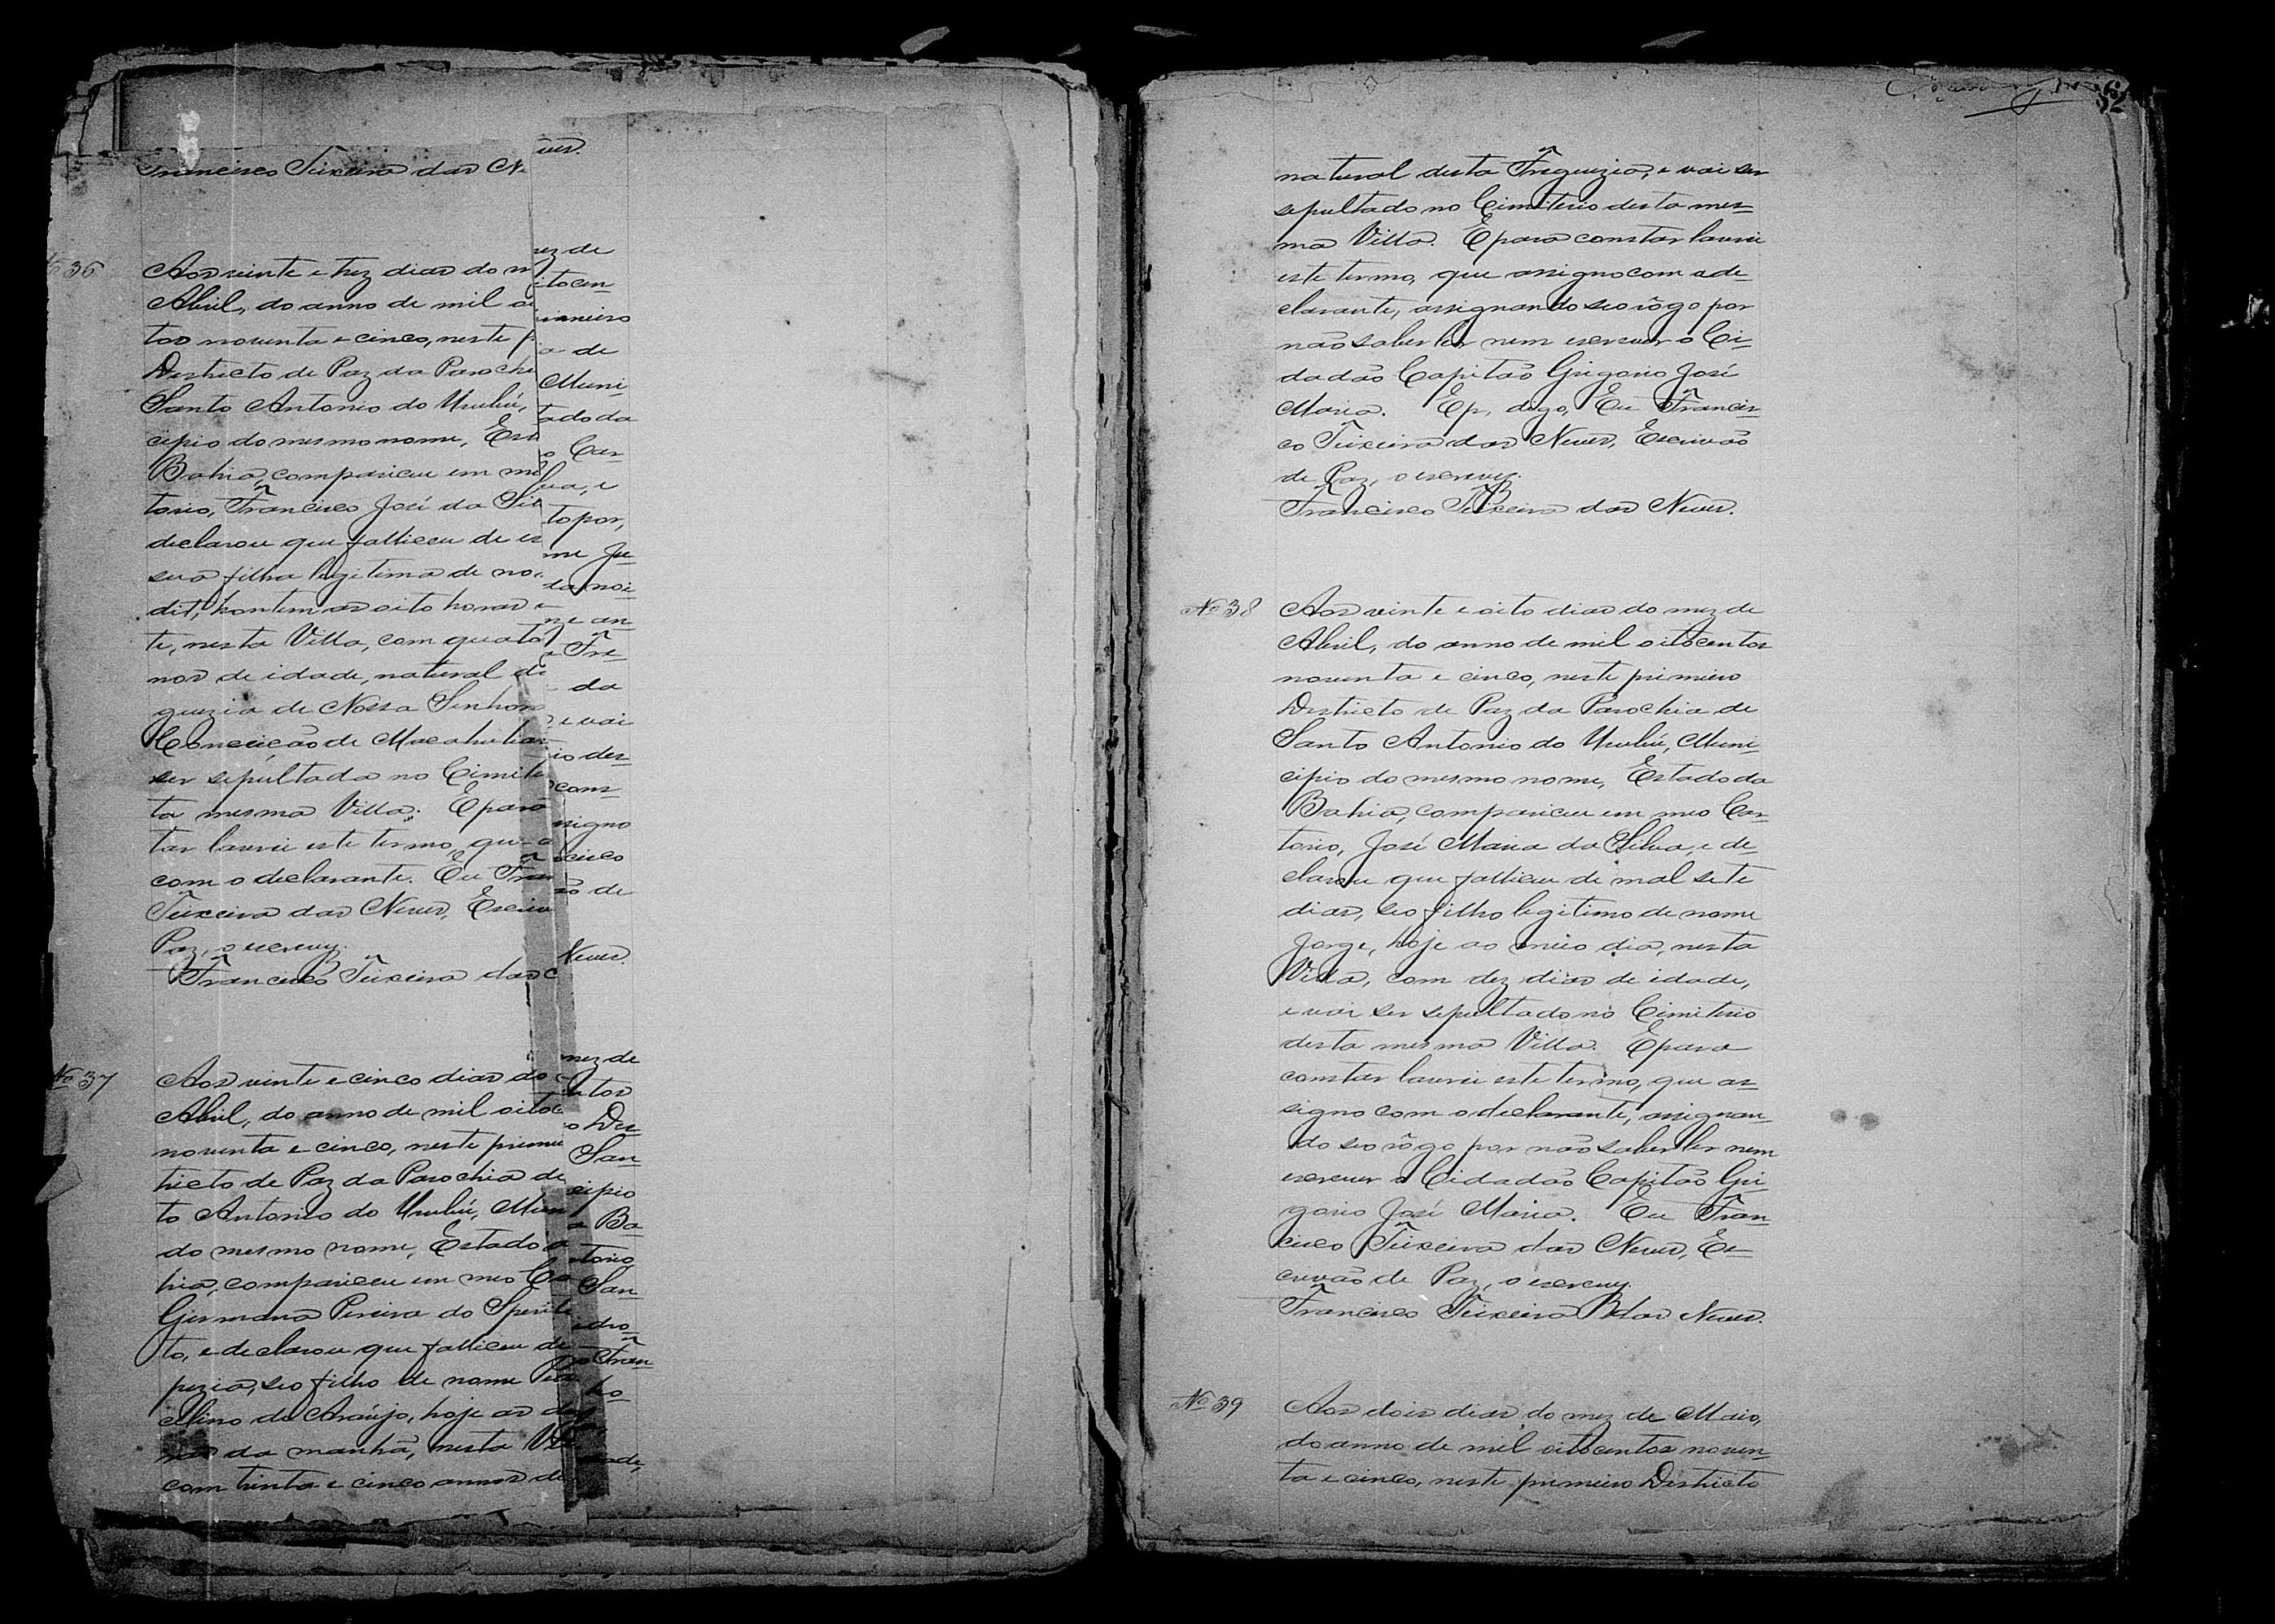 Francisco Teixeira das Neves.
Nº 36
Aos vinte e trez dias do mez de
Abril, do anno de mil oitocen-
tos noventa e cinco, neste primeiro
Destricto de Paz da Parochia de
Santo Antonio do Urubú, Muni-
cipio do mesmo nome, Estado da
Bahia, compareceu em meo Car-
torio, Francisco José da Silva, e
declarou que falleceu de
sua filha legitima de nome Ju-
dit, hontem as oito horas da noi-
te, nesta Villa, com quatro an-
nos de idade, natural da Fre-
guezia de Nossa Senhora da
Conceição de Macahubas, e vai
ser sepultada no Cimiterio des-
ta mesma Villa. E para cons-
tar lavrei este termo, que assigno
com o declarante. Eu Francisco
Teixeira das Neves, Escrivão de
Paz, o escrevy.
Francisco Teixeira das Neves.
Nº 37
Aos vinte e cinco dias do mez de
Abril, do anno de mil oitocentos
noventa e cinco, neste primeiro Des-
tricto de Paz da Parochia de San-
to Antonio do Urubú, Municipio
do mesmo nome, Estado da Ba-
hia, compareceu em meo Cartorio,
Germana Pereira do Sperito San-
to, e declarou que falleceu de
pezia, seo filho de nome
de Araújo, hoje as
da manhã, nesta Villa,
com trinta e cinco annos de idade,
52
natural desta Freguezia, e vai ser
sepultado no Cimiterio desta mes-
ma Villa. E para constar lavrei
este termo, que assigno com a de-
clarante, assignando seo rôgo por
não saber ler nem escrever o Ci-
dadão Capitão Grigorio José
Maria. Ep, digo, Eu Francis-
co Teixeira das Neves, Escrivão
de Paz, o escrevy.
Francisco Teixeira das Neves.
Nº 38
Aos vinte e oito dias do mez de
Abril, do anno de mil oitocentos
noventa e cinco, neste primeiro
Destricto de Paz da Parochia de
Santo Antonio do Urubú, Muni-
cipio do mesmo nome, Estado da
Bahia, compareceu em meo Car-
torio, José Maria da Silva, e de-
clarou que falleceu de mal sete
dias, seo filho legitimo de nome
Jorge, hoje ao meio dia, nesta
Villa, com dez dias de idade,
e vai ser sepultado no Cimiterio
desta mesma Villa. E para
constar lavrei este termo, que as-
signo com o declarante, assignan-
do seo rôgo por não saber ler nem
escrever o Cidadão Capitão Gri-
gorio José Maria. Eu Fran-
cisco Teixeira das Neves, Es-
crivão de Paz, o escrevy.
Francisco Teixeira das Neves.
Nº 39
Aos dois dias do mez de Maio,
do anno de mil oitocentos noven-
ta e cinco, neste primeiro Destricto